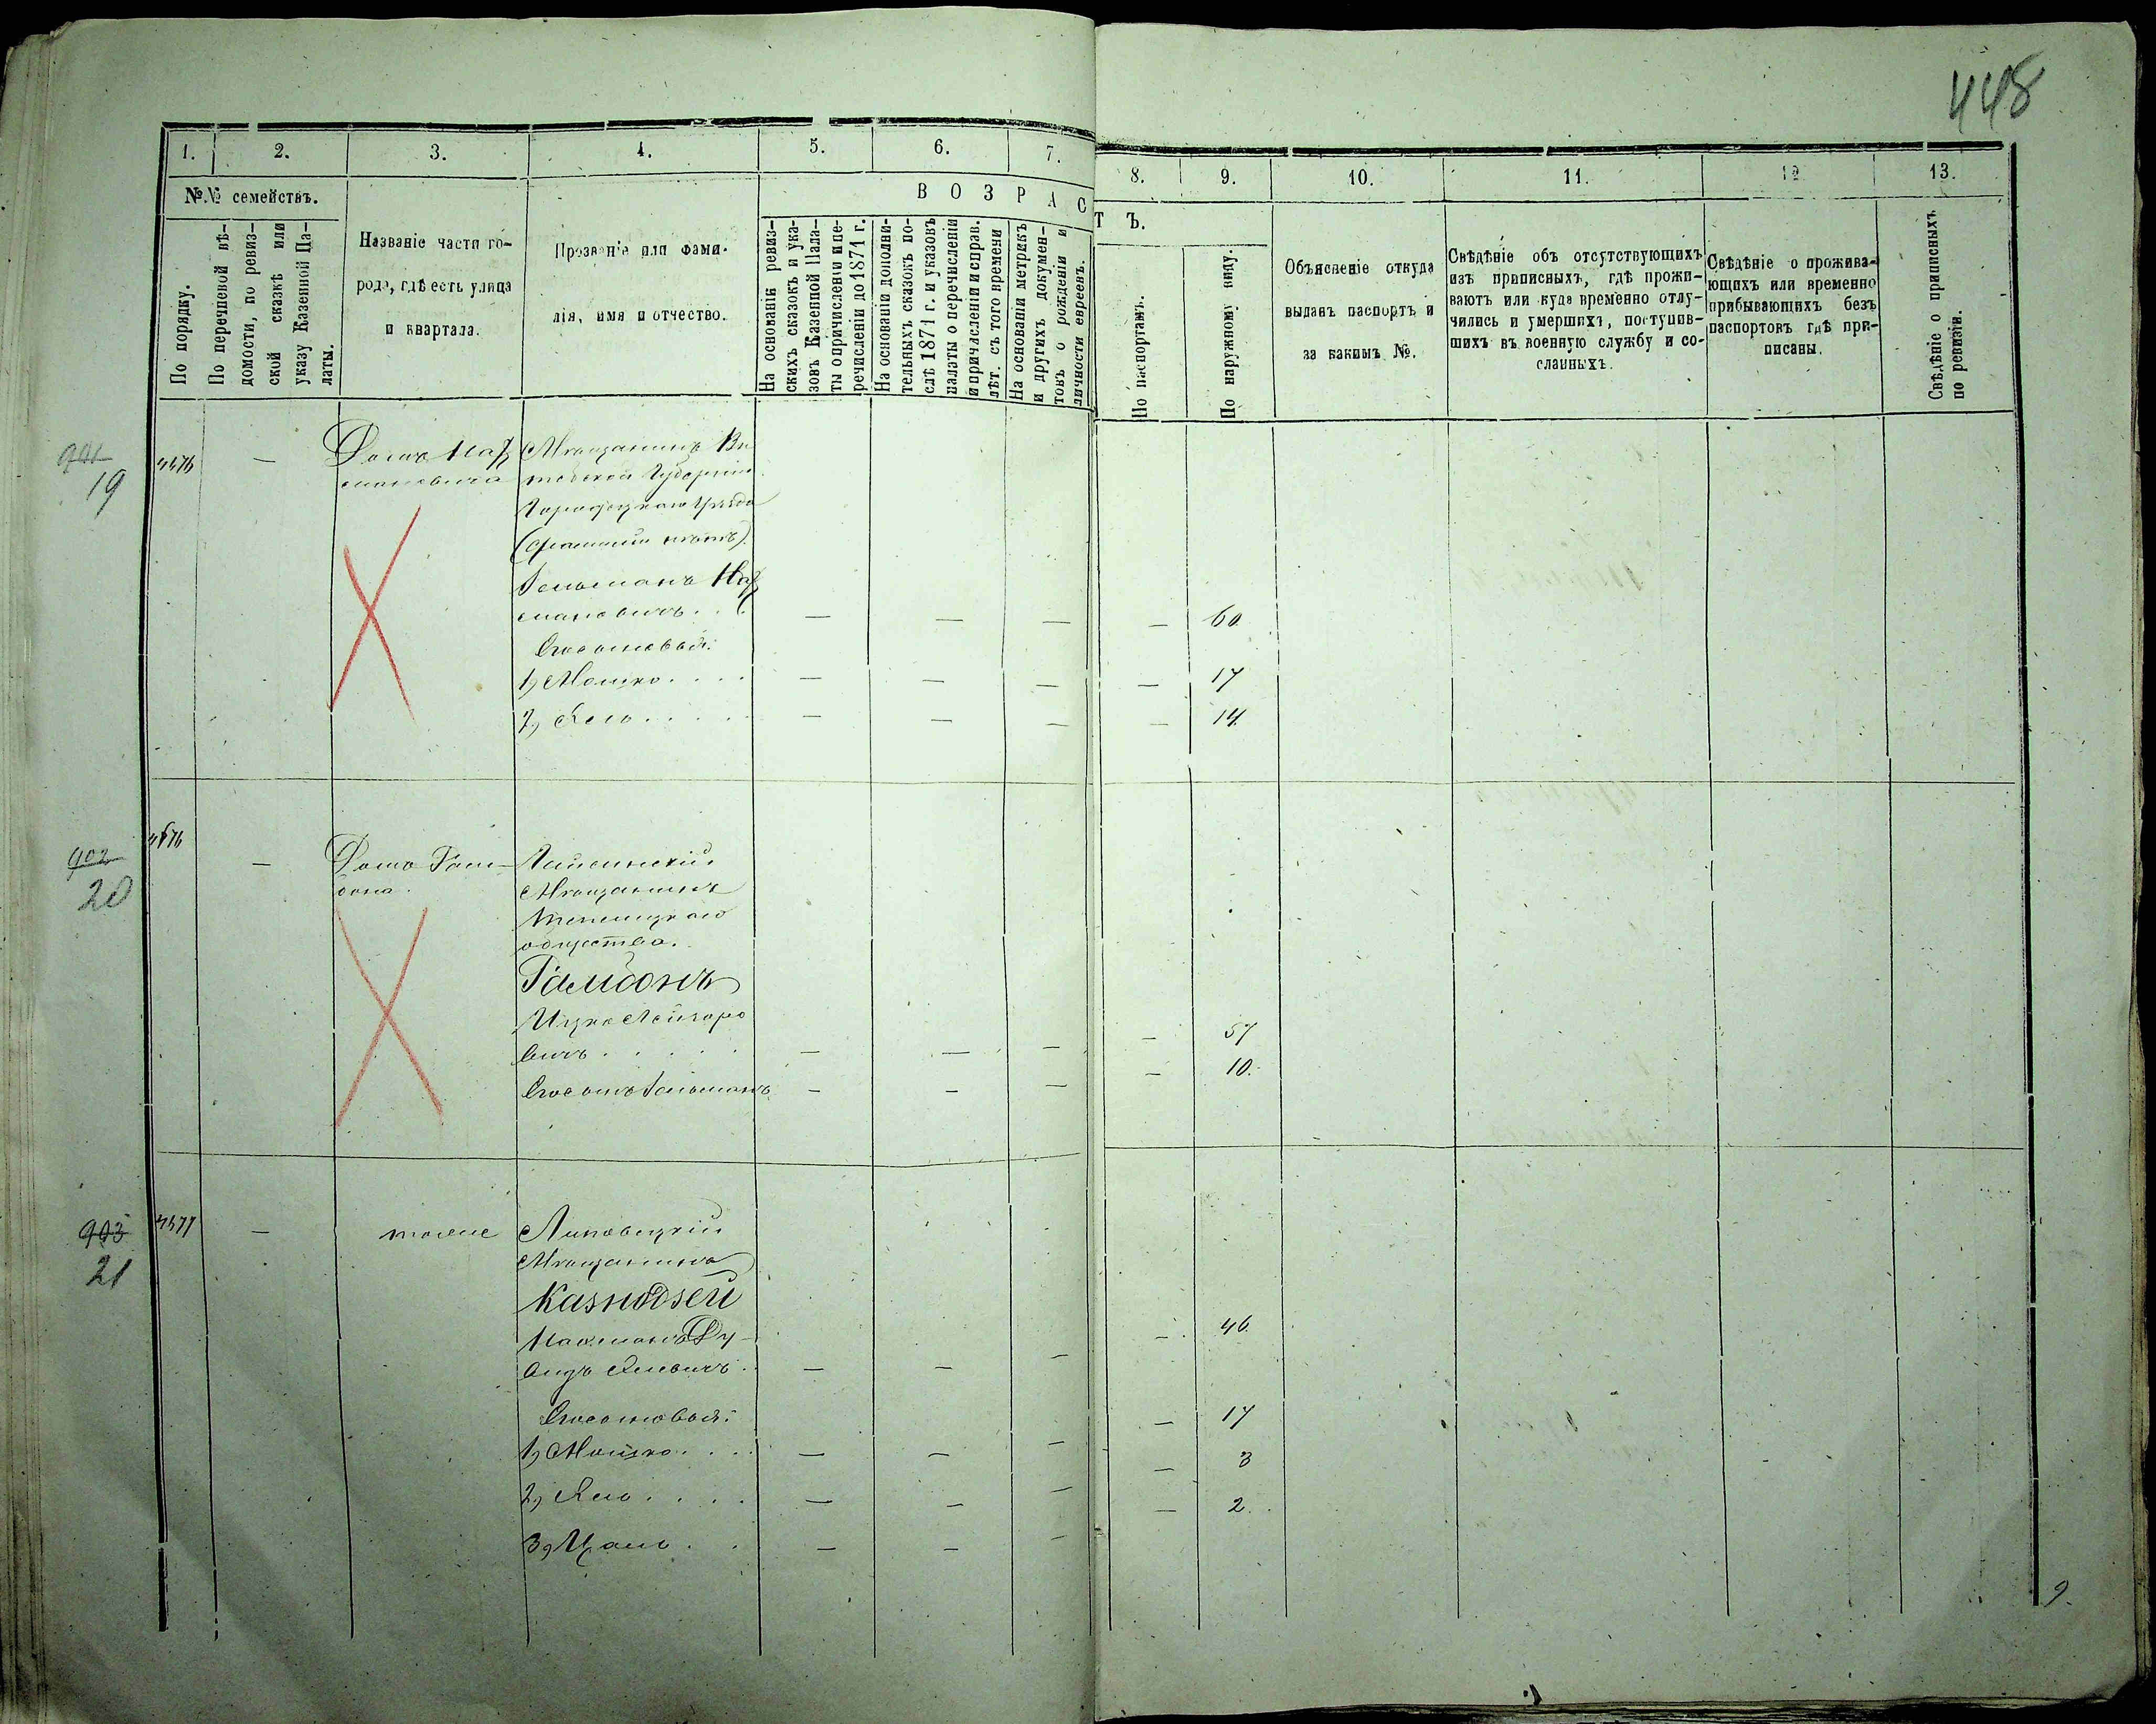 448
1. 2. 3. 4. 5. 6. 7. 8. 9. 10. 11. 12 13.
№№ семействъ.
По порядку.
По перечневой вѣ-
домости, по ревиз-
ской сказкѣ или
указу Казенной Па-
латы.
Названіе части го-
рода, гдѣ есть улица
и квартала.
Прозваніе или фами-
лія, имя и отчество.
ВОЗРАСТЪ.
На основаніи ревиз-
скихъ сказокъ и ука-
зовъ Казенной Пала-
ты о причисленіи и пе-
речисленіи до 1871 г.
На основаніи дополни-
тельныхъ сказокъ по-
слѣ 1871 г. и указовъ
палаты о перечисленіи
и причисленіи и справ.
лѣт. съ того времени
На основаніи метрикъ
и другихъ докумен-
товъ о рожденіи и
личности евреевъ.
По паспортамъ.
По наружному виду.
Объясненіе откуда
выданъ паспортъ и
за какимъ №.
Свѣдѣніе объ отсутствующихъ
изъ приписныхъ, гдѣ прожи-
ваютъ или куда временно отлу-
чились и умершихъ, поступив-
шихъ въ военную службу и со-
сланныхъ.
Свѣдѣніе о прожива-
ющихъ или временно
прибывающихъ безъ
паспортовъ гдѣ при-
писаны.
Свѣдѣніе о приписныхъ
по ревизіи.
19
— Домъ
Мѣщанинъ Ви
тебской Губерніи
Городецкаго Уѣзда
Гельманъ
— — — — 60
Сыновья:
1, Мошко . . . . — — — — 17
2, Лейб . . . . — — — — 14.
902
20
— Домъ
Гайсинскій
Мѣщанинъ
общества.
Гамбонъ
Ицко Лейзоро
вичъ . . . . . — — — — 57
Сынъ Гельманъ — — — — 10.
903
21
— тоже
Липовецкій
Мѣщанинъ
Казнодзей
Нахманъ Ду-
видъ — — — — 46.
Сыновья:
1, Мошко . . . — — — — 17
2, — — — — 3
3, — — — — 2.